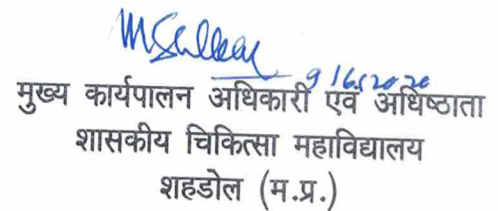 9/6/2020
मुख्य कार्यपालन अधिकारी एवं अधिष्ठाता
शासकीय चिकित्सा महाविद्यालय
शहडोल (म.प्र.)